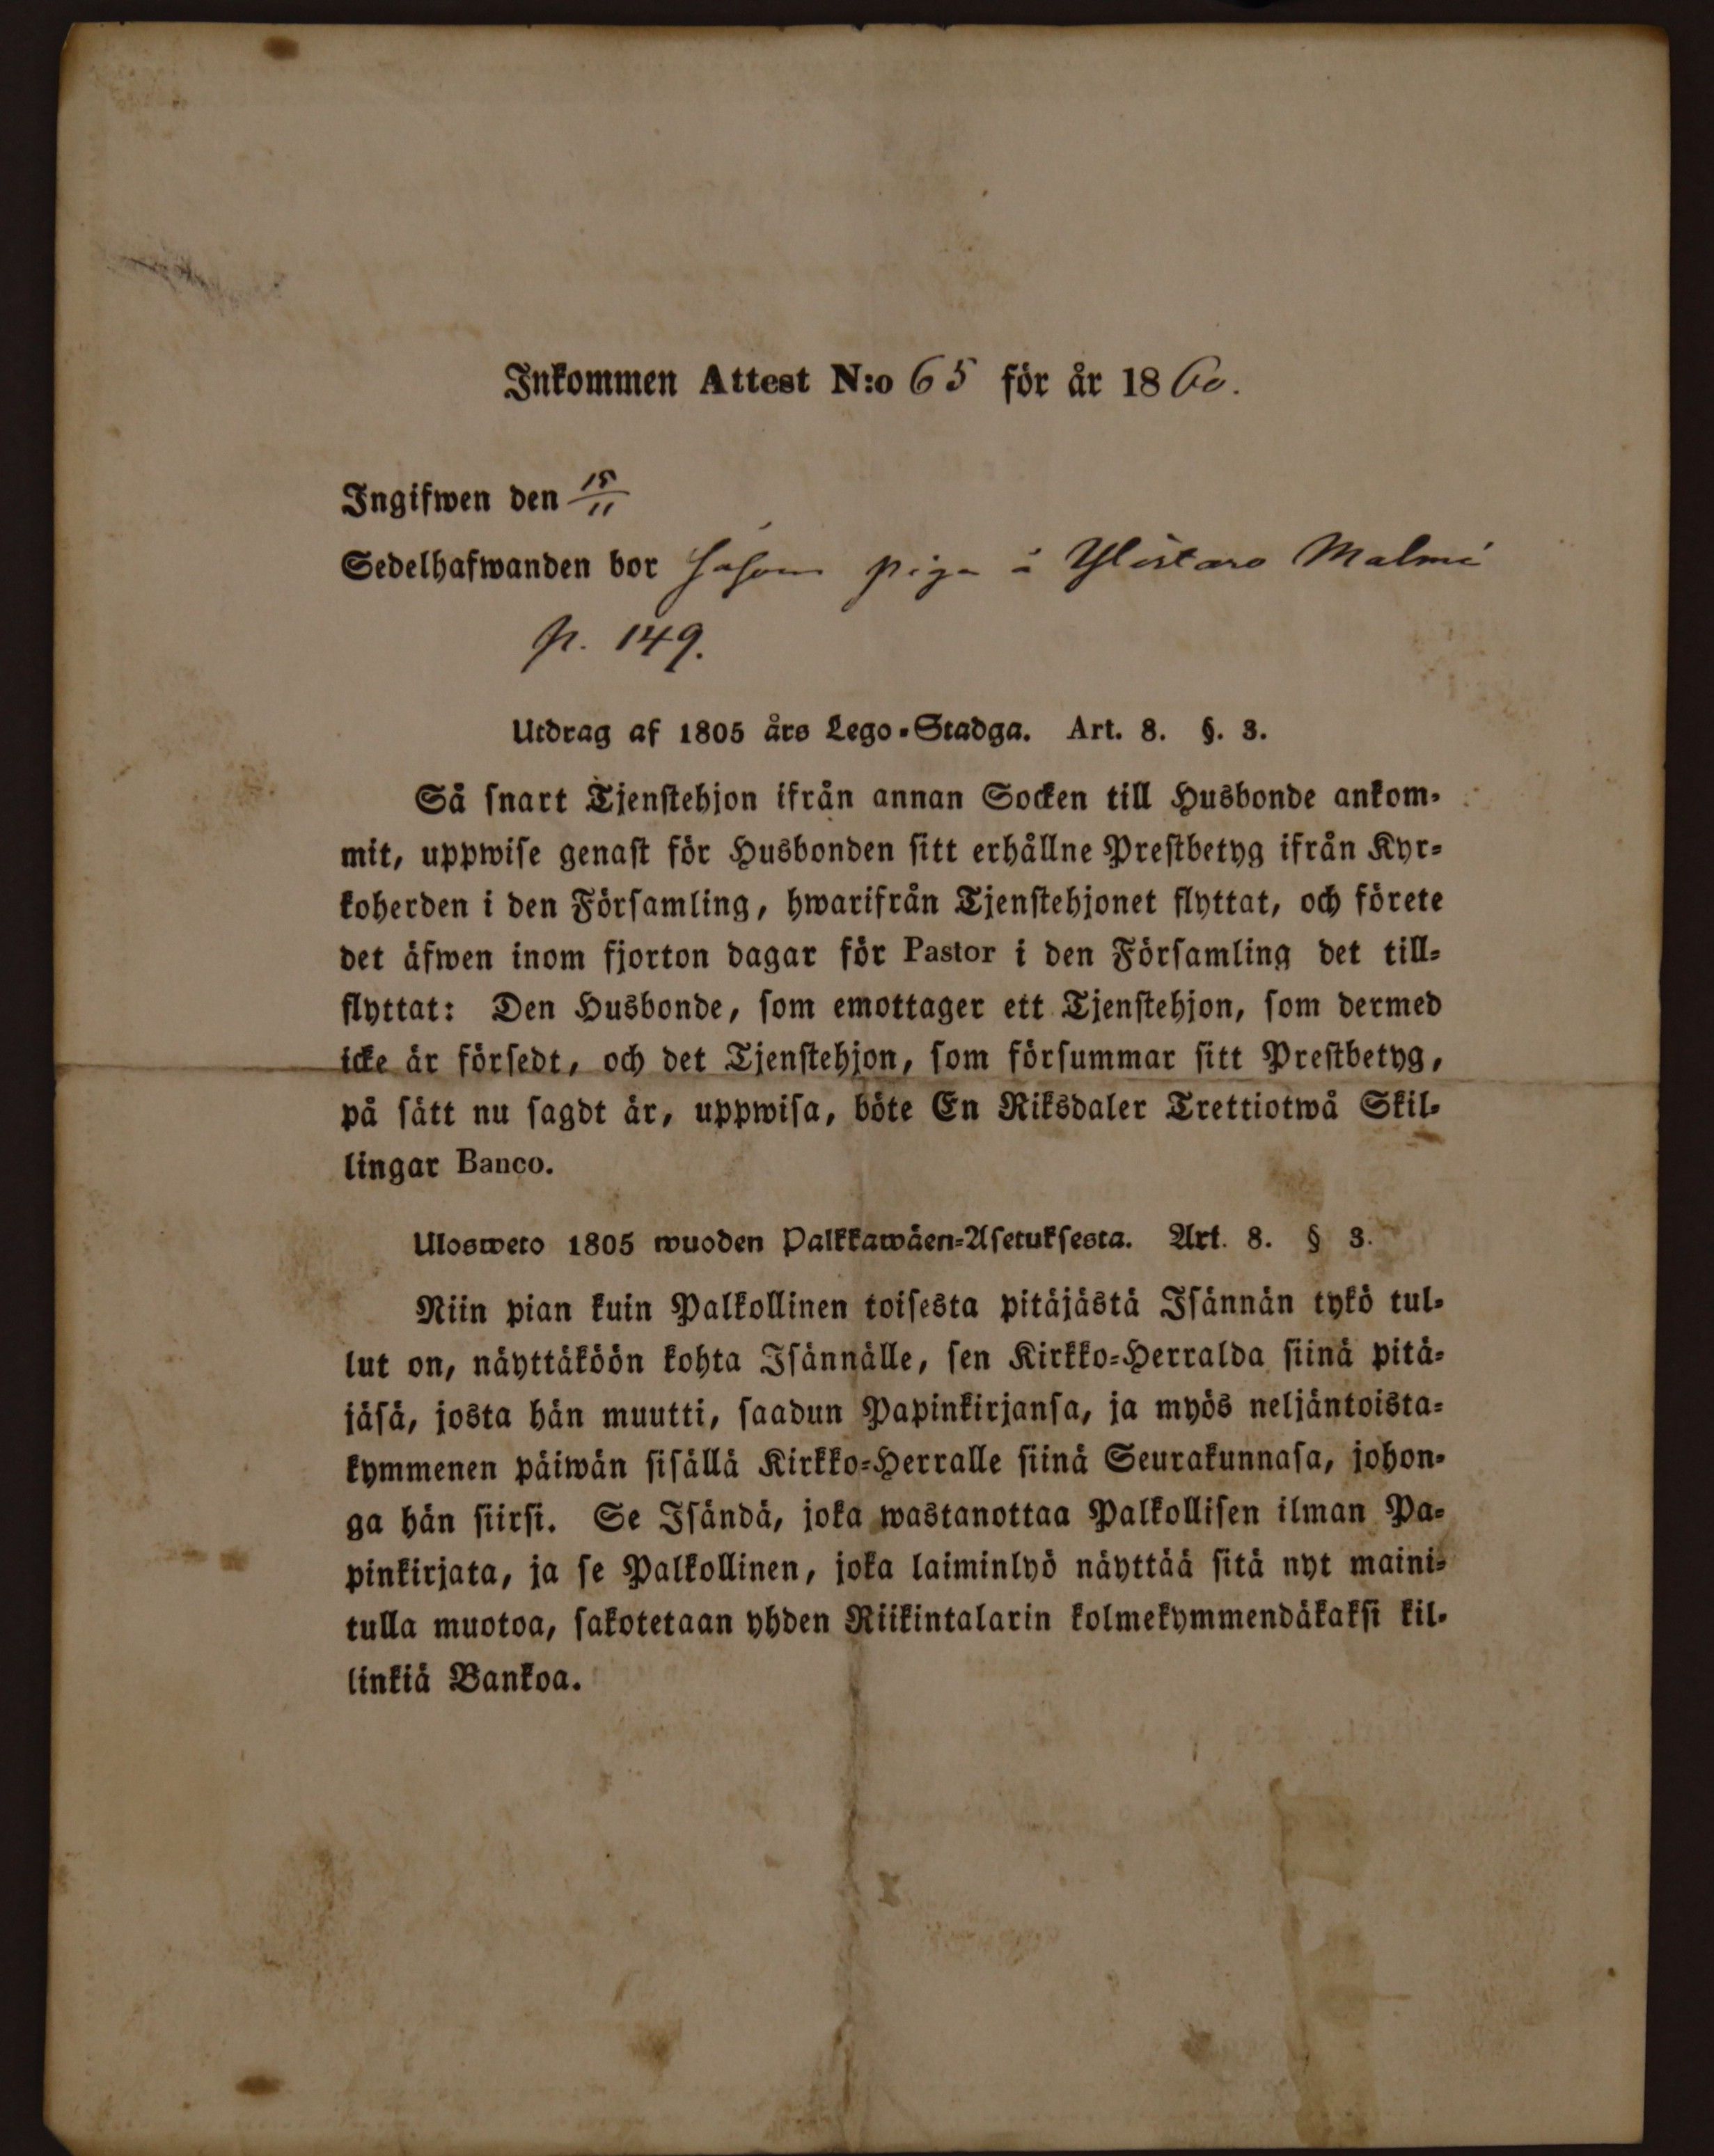 Inkommen Attest N:o 65 för år 1860.
Ingifwen den 15/11
Sedelhafwanden bor såsom piga å Ylistaro Malmi
p. 149.
Utdrag af 1805 års Lego-Stadga. Art. 8. §. 3.
Så snart Tjenstehjon ifrån annan Socken till Husbonde ankom-
mit, uppwise genast för Husbonden sitt erhållne Prestbetyg ifrån Kyr-
koherden i den Församling, hwarifrån Tjenstehjonet flyttat, och förete
det äfwen inom fjorton dagar för Pastor i den Församling det till-
flyttat: Den Husbonde, som emottager ett Tjenstehjon, som dermed
icke är försedt, och det Tjenstehjon, som försummar sitt Prestbetyg,
på sätt nu sagdt är, uppwisa, böte En Riksdaler Trettiotwå Skil-
lingar Banco.
Ulosweto 1805 wuoden Palkkawäen-Asetuksesta. Art. 8. § 3.
Niin pian kuin Palkollinen toisesta pitäjästä Isännän tykö tul-
lut on, näyttäköön kohta Isännälle, sen Kirkko-Herralda siinä pitä-
jäsä, josta hän muutti, saadun Papinkirjansa, ja myös neljäntoista-
kymmenen päiwän sisällä Kirkko-Herralle siinä Seurakunnasa, johon-
ga hän siirsi. Se Isändä, joka wastanottaa Palkollisen ilman Pa-
pinkirjata, ja se Palkollinen, joka laiminlyö näyttää sitä nyt maini-
tulla muotoa, sakotetaan yhden Riikintalarin kolmekymmendäkaksi kil-
linkiä Bankoa.